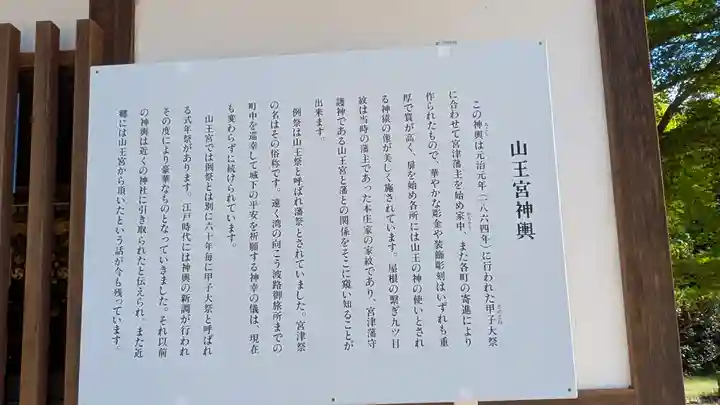 山王宮神輿
この神輿は元治元年（一八六四年）に行われた甲子大祭
に合わせて宮津藩主を始め家中、また各町の寄進により
作られたもので、華やかな彫金や装飾彫刻はいずれも重
厚で質が高く、扉を始め各所には山王の神の使いとされ
る神猿の像が美しく施されています。屋根の繋ぎ九ツ目
紋は当時の藩主であった本庄家の家紋であり、宮津藩守
護神である山王宮と藩との関係をそこに窺い知ることが
出来ます。
例祭は山王祭と呼ばれ藩祭とされていました。宮津祭
の名はその俗称です。遠く湾の向こう波路御旅所までの
町中を巡幸して城下の平安を祈願する神幸の儀は、現在
も変わらずに続けられています。
山王宮では例祭とは別に六十年毎に甲子大祭と呼ばれ
る式年祭があります。江戸時代には神輿の新調が行われ
その度により豪華なものとなっていきました。それ以前
の神輿は近くの神社に引き取られたと伝えられ、また近
郷には山王宮から頂いたという話が今も残っています。